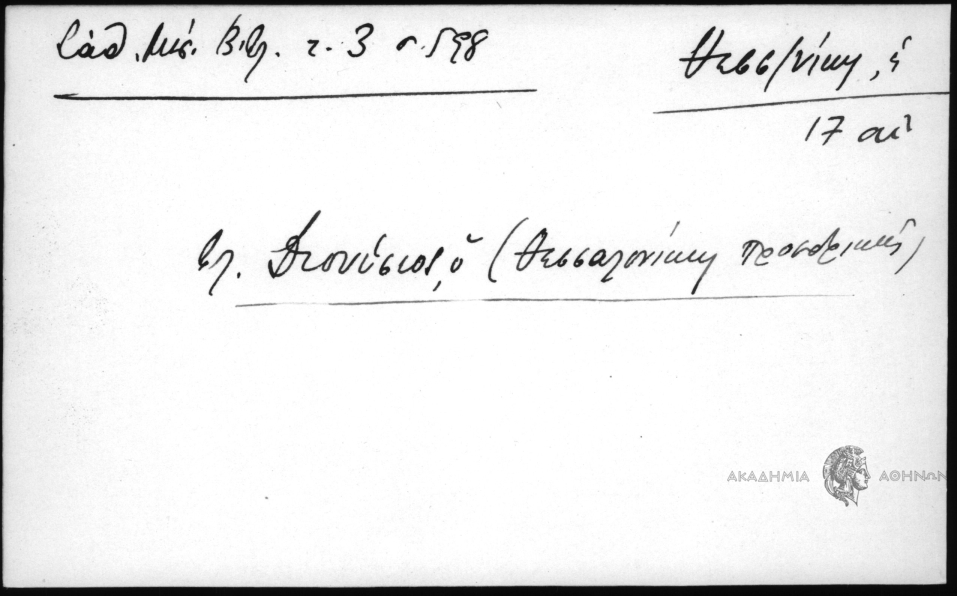 Σάθ. Μεσ. Βιβλ. τ. 3 σ. 598
Θεσσ/νίκη, ἡ
17 αἰ
βλ. Διονύσιος, ὁ (Θεσσαλονίκης
ΑΚΑΔΗΜΙΑ ΑΘΗΝΩΝ